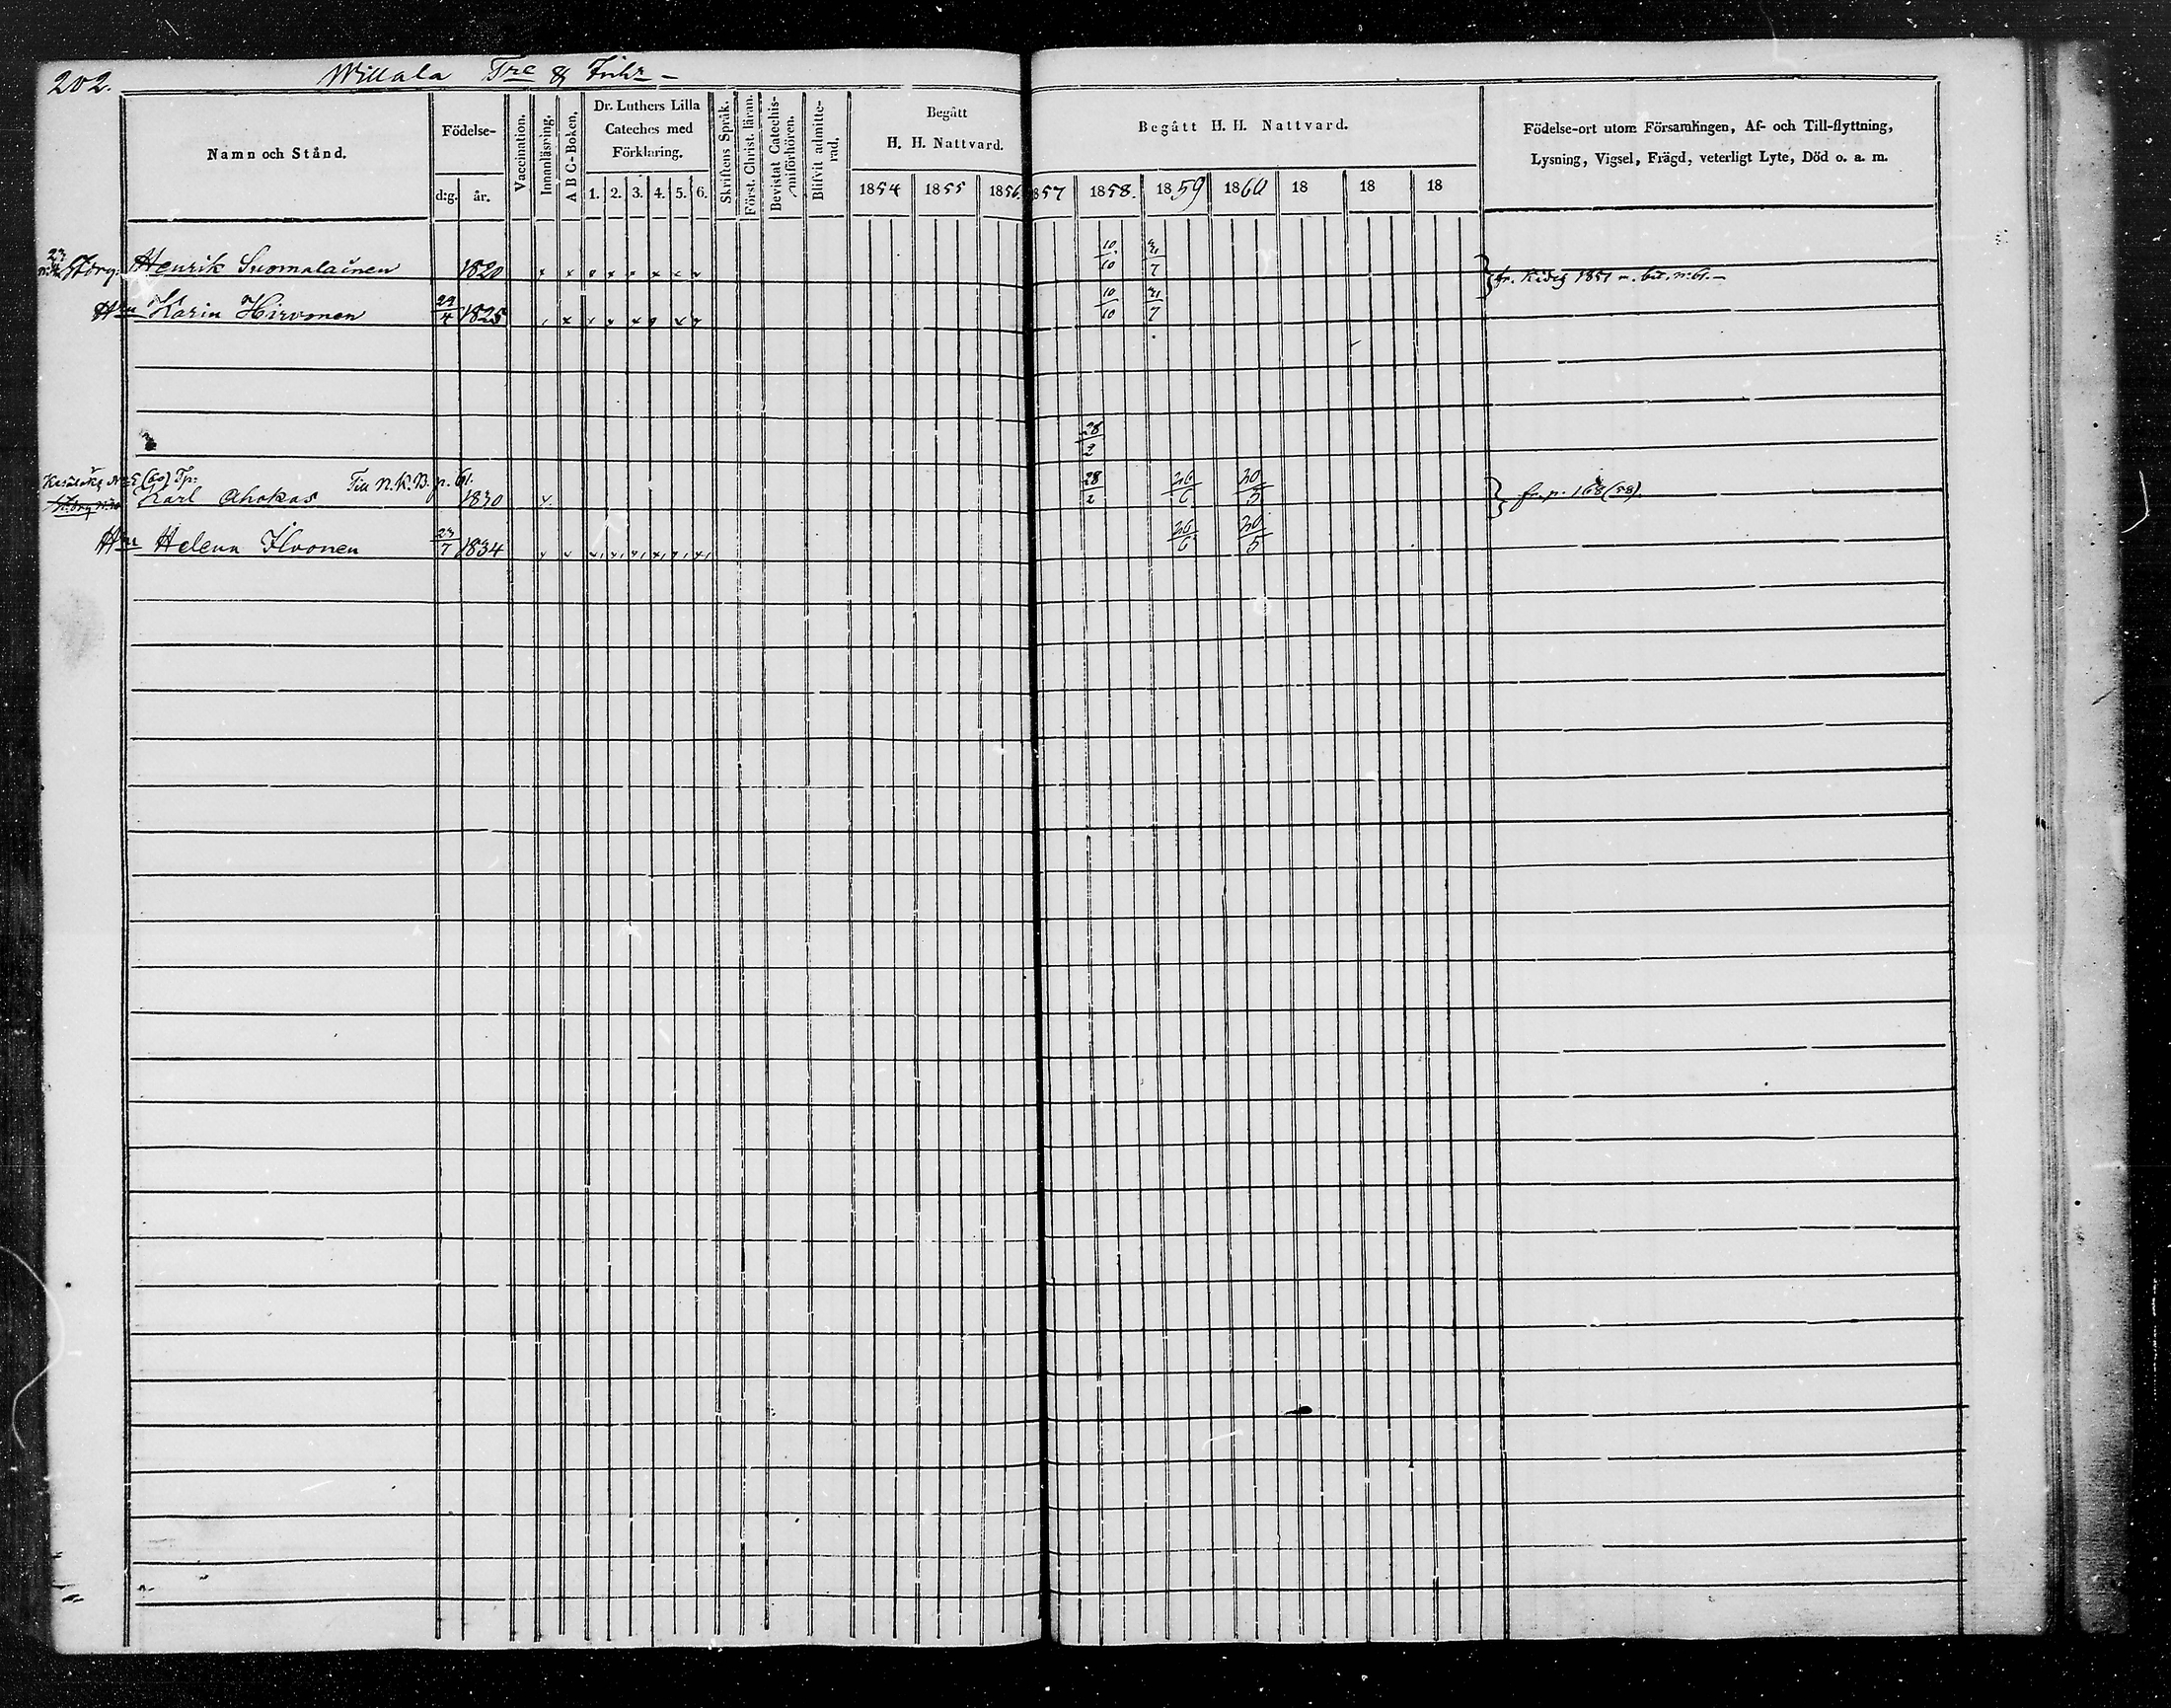 202.
Willala Tre & Inhr –
Namn och Stånd.
Födelse-
d:g. år.
Vaccination.
Innanläsning.
A B C-Boken.
Dr. Luthers Lilla
Cateches med
Förklaring.
1. 2. 3. 4. 5. 6.
Skriftens Språk.
Först. Christ. läran.
Bevistat Catechis-
miförhören.
Blifvit admitte-
rad.
Begått
H. H. Nattvard.
1854 1855 1856
Begått H. H. Nattvard.
1857 1858. 1859 1860 18 18 18
Födelse-ort utom Församlingen, Af- och Till-flyttning,
Lysning, Vigsel, Frägd, veterligt Lyte, Död o. a. m.
Henrik Suomalainen 1820 x x x x x x x x 10/10 fr. 1851 m. bet. n:61. –
Hru Karin Hirvonen 29/4 1825 x x x x x x x 10/10
28/2
(60) Tp: Till N.K.B. p. 61.
Karl Ahokas 1830 x 28/2 26/6 20/5 fr. p. 168 (58).
Hru Helena Ilvonen 23/7 1834 x x x x x x x x 26/6 20/5